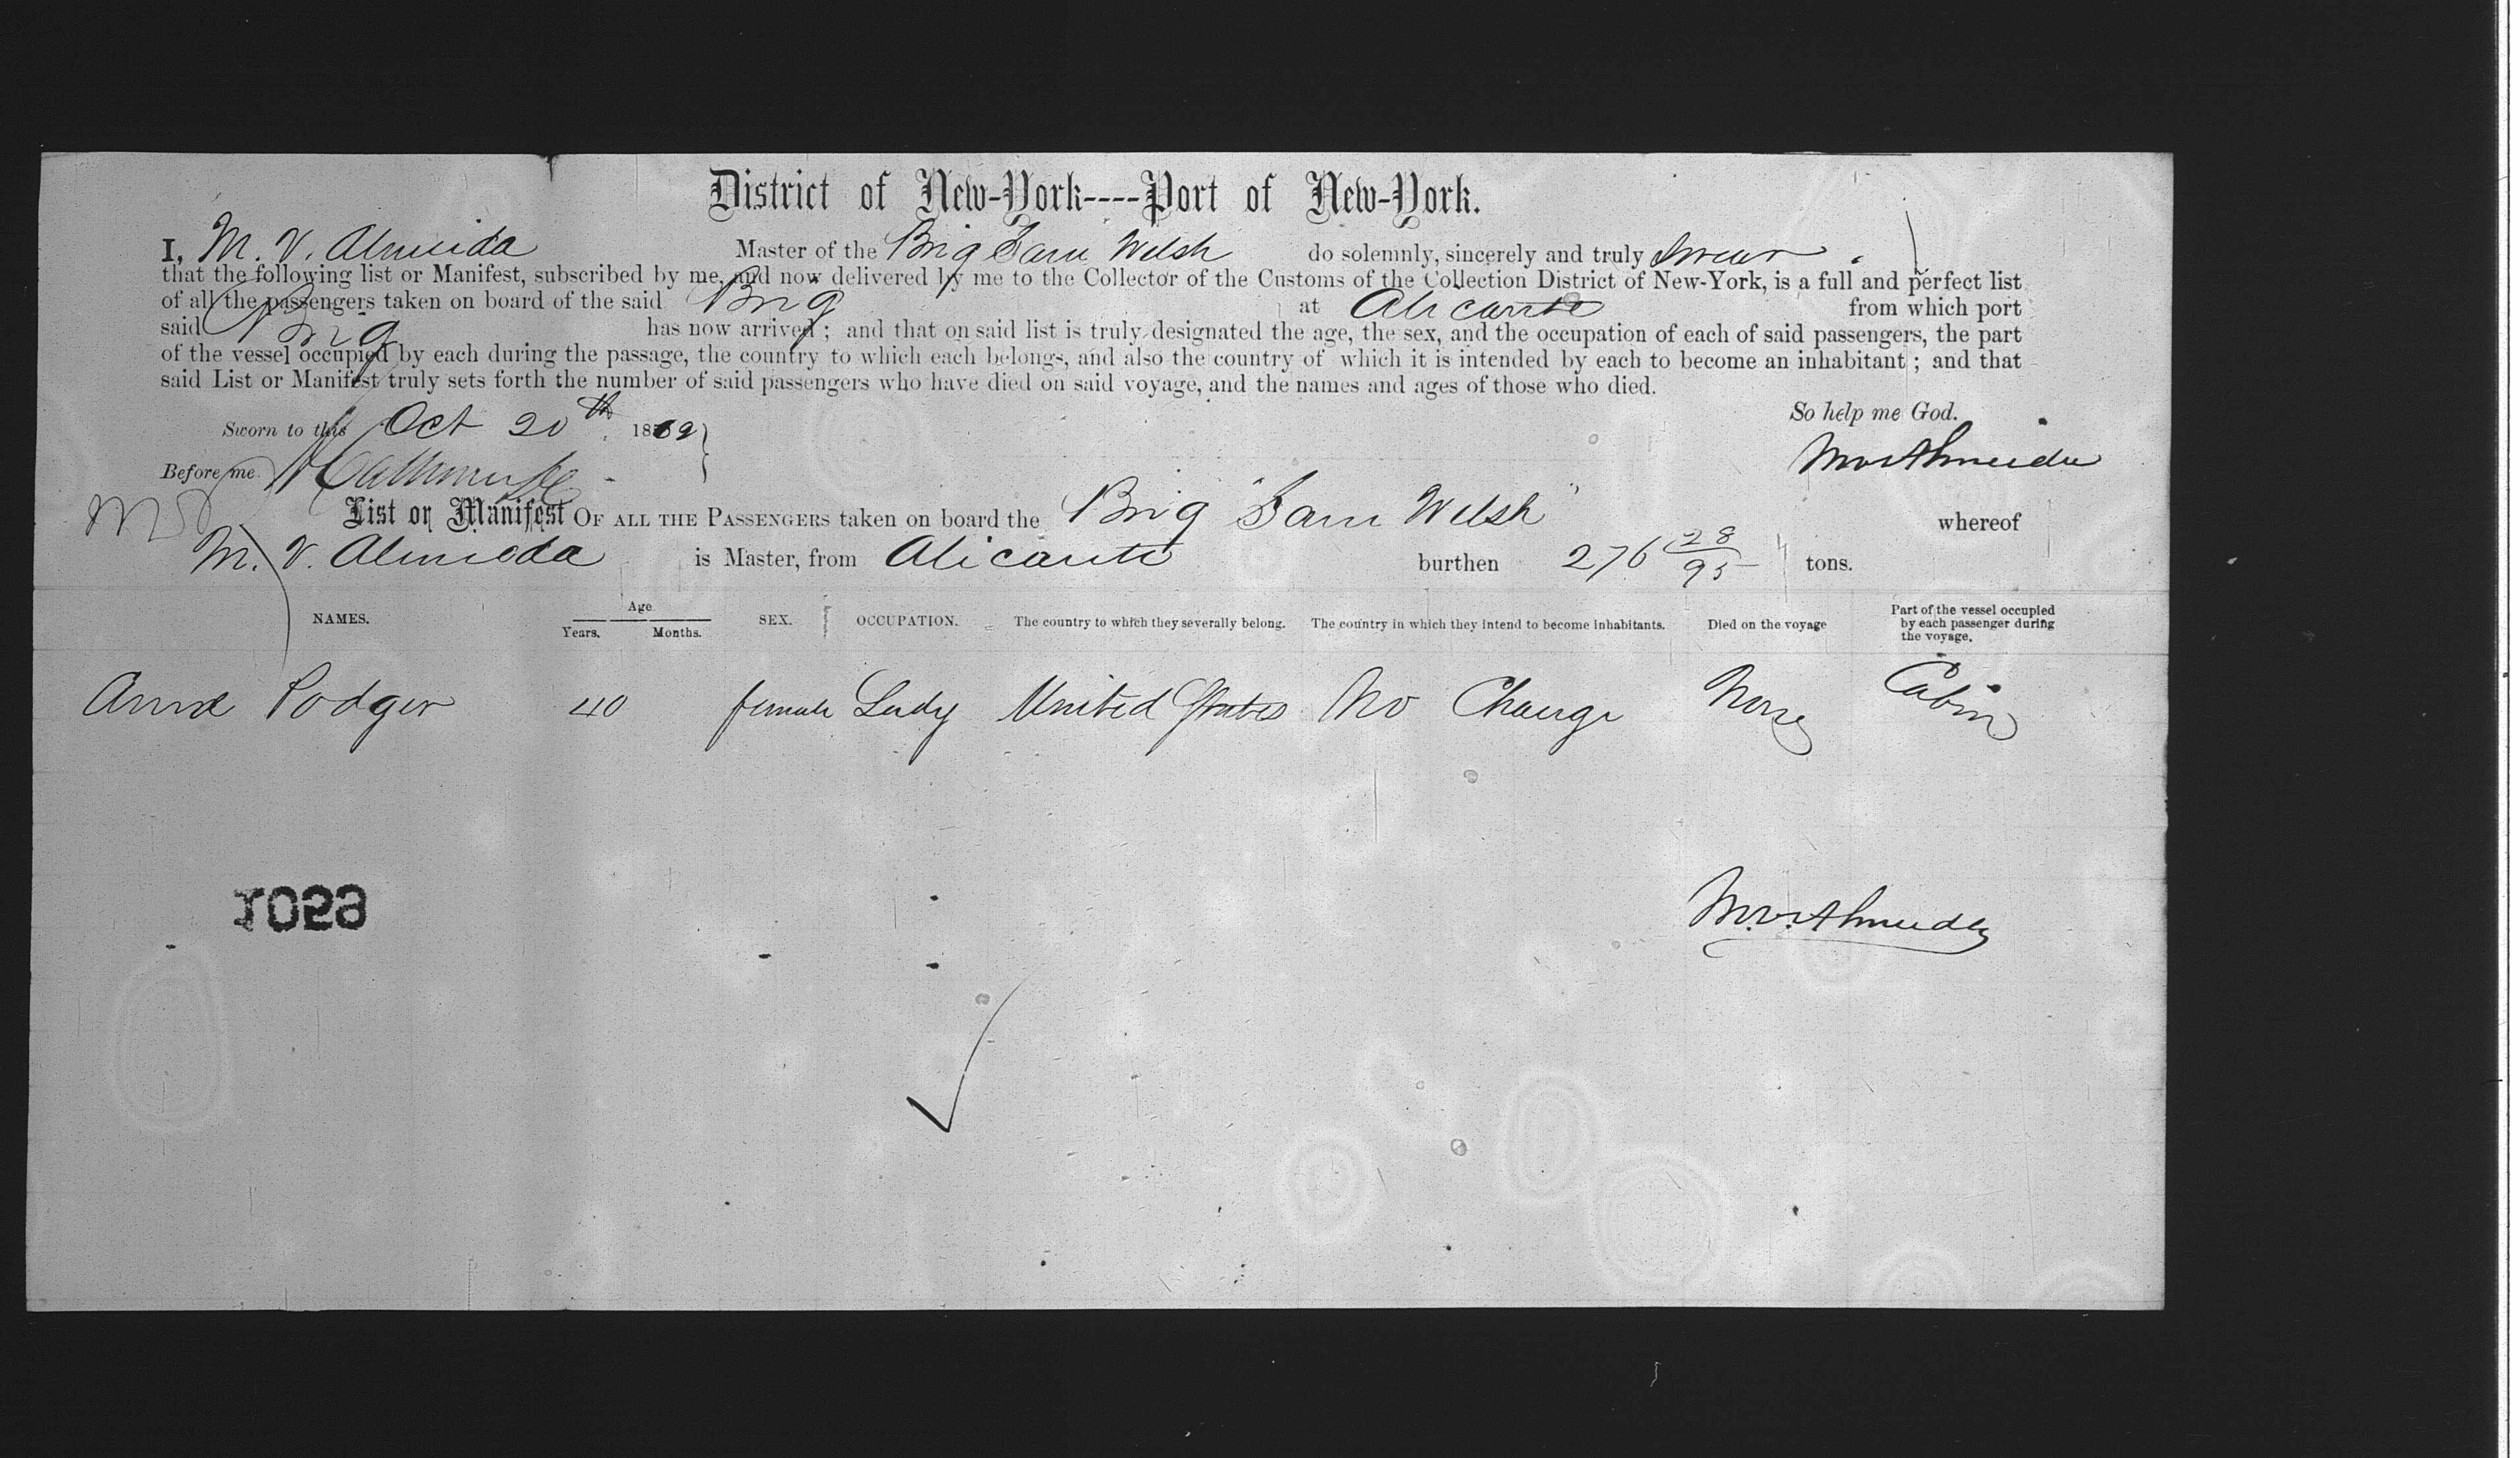 District of New-York----Port of New-York.
I, M. V. Almeida Master of the Brig Sam Welsh do solemnly, sincerely and truly swear
that the following list or Manifest, subscribed by me, and now delivered by me to the Collector of the Customs of the Collection District of New-York, is a full and perfect list
of all the passengers taken on board of the said Brig at Alicante from which port
said Brig has now arrived; and that on said list is truly designated the age, the sex, and the occupation of each of said passengers, the part
of the vessel occupied by each during the passage, the country to which each belongs, and also the country of which it is intended by each to become an inhabitant; and that
said List or Manifest truly sets forth the number of said passengers who have died on said voyage, and the names and ages of those who died.
So help me God.
Sworn to this Oct 20th 1862
M V Almeida
Before me
List or Manifest OF ALL THE PASSENGERS taken on board the Brig "Sam Welsh" whereof
M. V. Almeda is Master, from Alicante burthen 276 28/95 tons.
NAMES. Age Years. Months. SEX. OCCUPATION. The country to which they severally belong. The country in which they intend to become inhabitants. Died on the voyage Part of the vessel occupied by each passenger during the voyage.
Anna Podger 40 female Lady United States No Change None Cabin
1059
M. V. Almeida